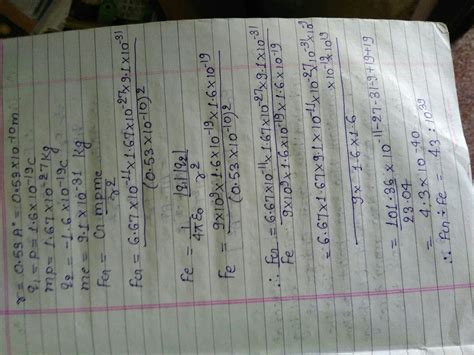 r = 0.53A° = 0.53×10-10m
q1 = p = 1.6×10-19C
q2 = -1.6×10-19C
mp = 1.67×10-27kg
me = 9.1×10-31 kg
FG = G mpme / r2
FG = 6.67×10-11×1.67×10-27×9.1×10-31 / (0.53×10-10)2
Fe = 1/4πε0 |q1||q2| / r2
Fe = 9×109×1.6×10-19×1.6×10-19 / (0.53×10-10)2
∴ FG/Fe = 6.67×10-11×1.67×10-27×9.1×10-31 / 9×109×1.6×10-19×1.6×10-19
= 6.67×1.67×9.1×10-11×10-27×10-31×10-9 ×1019×1019 / 9×1.6×1.6
= 101.36×10-11-27-31-9+19+19 / 23.04
= 4.3×10-40
∴ FG:Fe = 43:1039